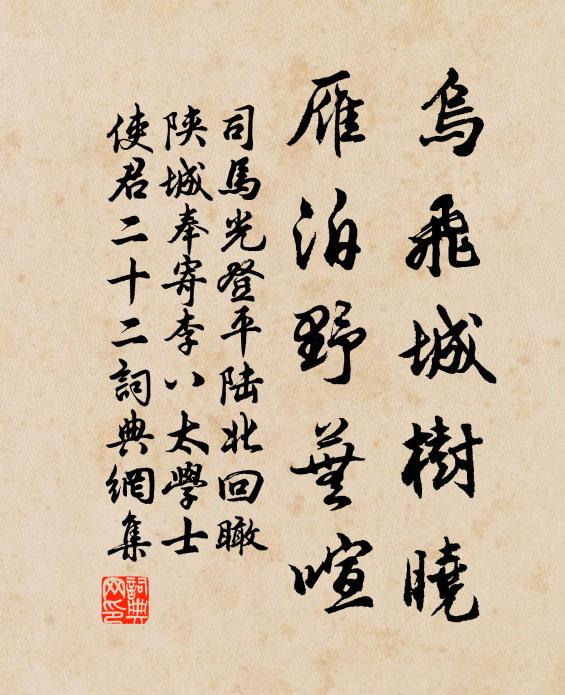 烏飛城樹曉
雁泊野蕪喧
司馬光登平陸北回瞰
陝城奉寄李八太學士
使君二十二詞典網集
詞典
网印